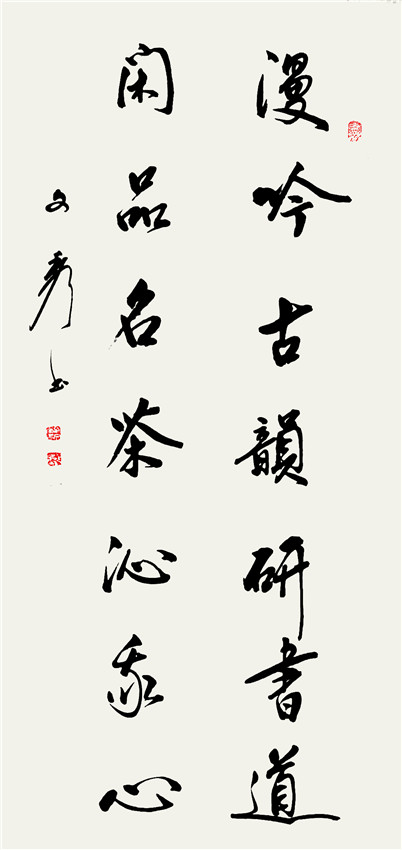 漫吟古韻研書道
闲品名茶沁我心
文秀书